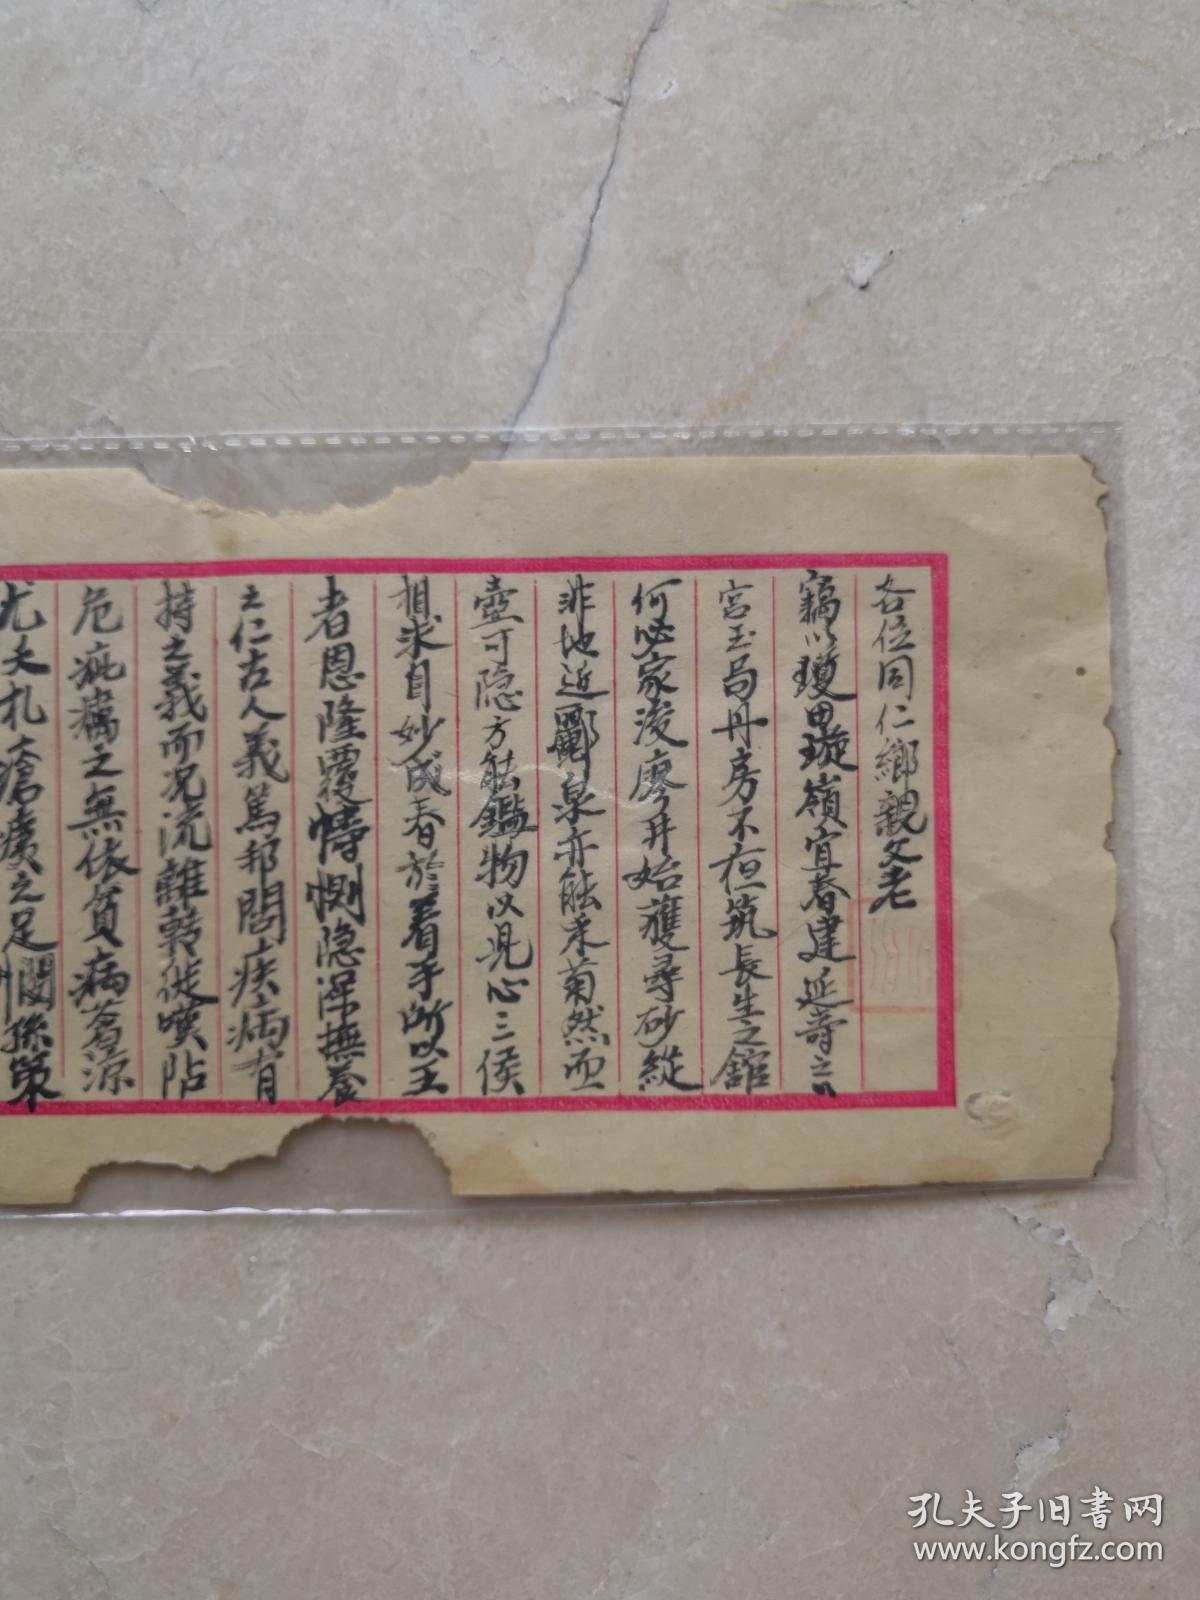 各位同仁鄉親父老
竊以瓊田璇嶺宜春建延壽之
宮玉局丹房不在筑長生之舘
何必家浚廖井始獲尋砂縱
非地近酈泉亦能采菊然而
壺可隐方能鑑物以見心三候
相求自妙成春於着手所以王
者恩隆覆幬惻隐深撫養
之仁古人義篤邦閭疾病有
持之義而况流離转徙嘆阽
危疵癘之無依貧病著涼
尤夭札瘡痍之足憫孫策
孔夫子旧书网
www.kongfz.com